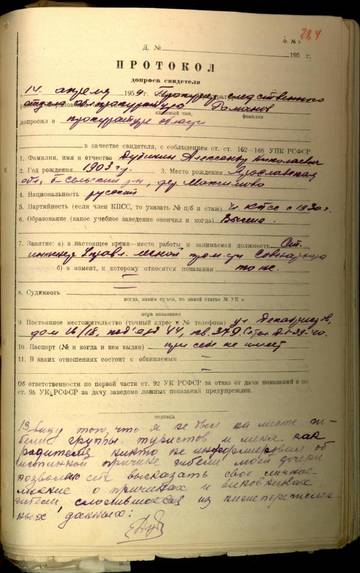 284
Д. №
195 г.
ПРОТОКОЛ
допроса свидетеля
14 апреля 1959 г. Прокурор следственного
отдела облпрокуратуры Романов
фамилия
допросил в прокуратуре области
в качестве свидетеля, с соблюдением ст. ст. 162—168 УПК РСФСР
1. Фамилия, имя и отчество Дубинин Александр Николаевич
2. Год рождения 1903 г. 3. Место рождения Ярославская
обл.,
4. Национальность русский
5. Партийность (если член КПСС, то указать № п/б и стаж) чл. КПСС с 1930 г.
6. Образование (какое учебное заведение окончил и когда) Высшее
7. Занятие: а) в настоящее время—место работы и занимаемая должность Ст.
инженер Управл. лесной пром-ти Совнархоза
б) в момент, к которому относятся показания то же
8. Судимость
когда, каким судом, по какой статье УК и
мера наказания
9. Постоянное местожительство (точный адрес и № телефона) ул. Декабристов,
10. Паспорт (№ и когда и кем выдан) при себе не имеет
11. В каких отношениях состоит с обвиняемым —
Об ответственности по первой части ст. 92 УК РСФСР за отказ от дачи показаний и по
ст. 95 УК РСФСР за дачу заведомо ложных показаний предупрежден.
подпись
Ввиду того, что я не был на месте ги-
бели группы туристов и меня, как
родителя, никто не информировал об
истинной причине гибели моей дочери
позволю себе высказать свое личное
мнение о причинах и виновниках
гибели, сложившееся из
ных данных: